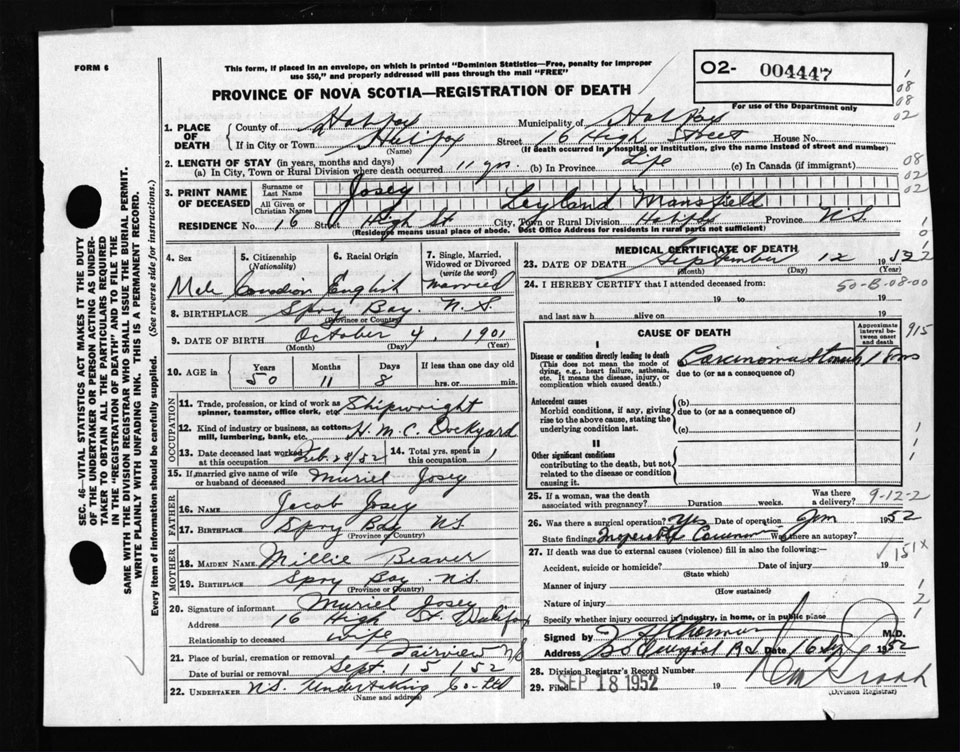 FORM 6
This form, if placed in an envelope, on which is printed "Dominion Statistics—Free, penalty for improper
use $50," and properly addressed will pass through the mail "FREE"
O2- 004447
For use of the Department only
PROVINCE OF NOVA SCOTIA—REGISTRATION OF DEATH
1. PLACE OF DEATH County of Halifax Municipality of Halifax
If in City or Town Halifax (Name) Street 16 High Street House No.
(If death occurred in a hospital or institution, give the name instead of street and number)
2. LENGTH OF STAY (in years, months and days)
(a) In City, Town or Rural Division where death occurred 11 yrs. (b) In Province Life (c) In Canada (if immigrant)
3. PRINT NAME OF DECEASED
Surname or Last Name Josey
All Given or Christian Names Leyland Mansfield
RESIDENCE No. 16 Street High St City, Town or Rural Division Halifax Province N.S.
(Residence means usual place of abode. Post Office Address for residents in rural parts not sufficient)
4. Sex Male
5. Citizenship (Nationality) Canadian
6. Racial Origin English
7. Single, Married, Widowed or Divorced (write the word) Married
8. BIRTHPLACE Spry Bay. N.S.
(Province or Country)
9. DATE OF BIRTH October 4, 1901
(Month) (Day) (Year)
10. AGE in Years 50 Months 11 Days 8 If less than one day old hrs. or min.
OCCUPATION
11. Trade, profession, or kind of work as spinner, teamster, office clerk, etc. Shipwright
12. Kind of industry or business, as cotton mill, lumbering, bank, etc. H.M.C. Dockyard
13. Date deceased last worked at this occupation Feb. 28/52 14. Total yrs. spent in this occupation 1
15. If married give name of wife or husband of deceased Muriel Josey
FATHER
16. NAME Jacob Josey
17. BIRTHPLACE Spry Bay NS
(Province or Country)
MOTHER
18. MAIDEN NAME Millie Beaver
19. BIRTHPLACE Spry Bay N.S.
(Province or Country)
20. Signature of informant Muriel Josey
Address 16 High St. Halifax
Relationship to deceased wife
21. Place of burial, cremation or removal Fairview N/S
Date of burial or removal Sept. 15 52
22. UNDERTAKER N.S. Undertaking Co Ltd
(Name and address)
MEDICAL CERTIFICATE OF DEATH
23. DATE OF DEATH September 12 1952
(Month) (Day) (Year)
24. I HEREBY CERTIFY that I attended deceased from:
50-B-08-00
19 to 19
and last saw h alive on 19
CAUSE OF DEATH
Approximate interval between onset and death
I
Disease or condition directly leading to death
(This does not mean the mode of dying, e.g., heart failure, asthenia, etc. It means the disease, injury, or complication which caused death.)
Carcinoma Stomach
due to (or as a consequence of)
Antecedent causes
Morbid conditions, if any, giving rise to the above cause, stating the underlying condition last.
(b)
due to (or as a consequence of)
(c)
II
Other significant conditions
contributing to the death, but not related to the disease or condition causing it.
25. If a woman, was the death associated with pregnancy? Duration weeks. Was there a delivery?
9-12-2
26. Was there a surgical operation? Yes Date of operation Jan 1952
State findings Inoperable Carcinoma Was there an autopsy?
151X
27. If death was due to external causes (violence) fill in also the following:—
Accident, suicide or homicide? Date of injury 19
(State which)
Manner of injury
(How sustained)
Nature of injury
Specify whether injury occurred in industry, in home, or in public place
Signed by M.D.
Address Rd Date 16 Sep 1952
28. Division Registrar's Record Number
29. Filed SEP 18 1952 19
(Division Registrar)
SEC. 46—VITAL STATISTICS ACT MAKES IT THE DUTY
OF THE UNDERTAKER OR PERSON ACTING AS UNDERTAKER
TO OBTAIN ALL THE PARTICULARS REQUIRED
IN THE "REGISTRATION OF DEATH" AND TO FILE THE
SAME WITH THE DIVISION REGISTRAR WHO SHALL ISSUE THE BURIAL PERMIT.
WRITE PLAINLY WITH UNFADING INK. THIS IS A PERMANENT RECORD.
Every item of information should be carefully supplied. (See reverse side for instructions.)
1
08
08
02
08
02
02
915